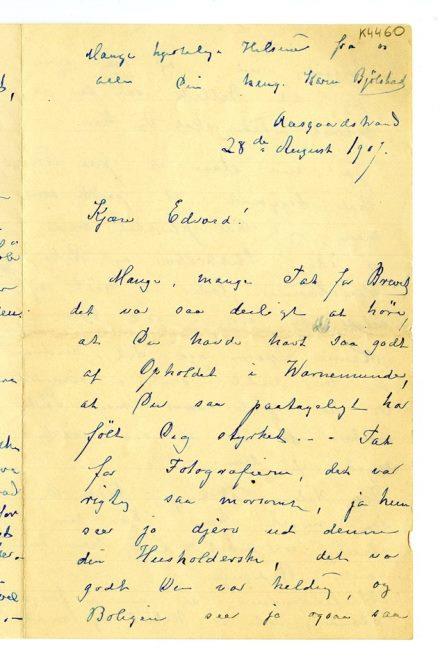 K4460
Mange hjertelige Hilsener fra os
alle Din heng. Karen Bjölstad
Aasgaardstrand
28de August 1907.
Kjære Edvard!
Mange, mange Tak for Brevet
det var saa deiligt at höre,
at Du havde havt saa godt
af Opholdet i Warnemünde,
at Du saa paatageligt har
fölt Dig styrket. - - Tak
for Fotografierne, det var
rigtig saa morsomt, ja hun
seer jo djerv ud denne
din Husholderske, det var
godt Du var heldig, og
Boligen seer jo ogsaa saa